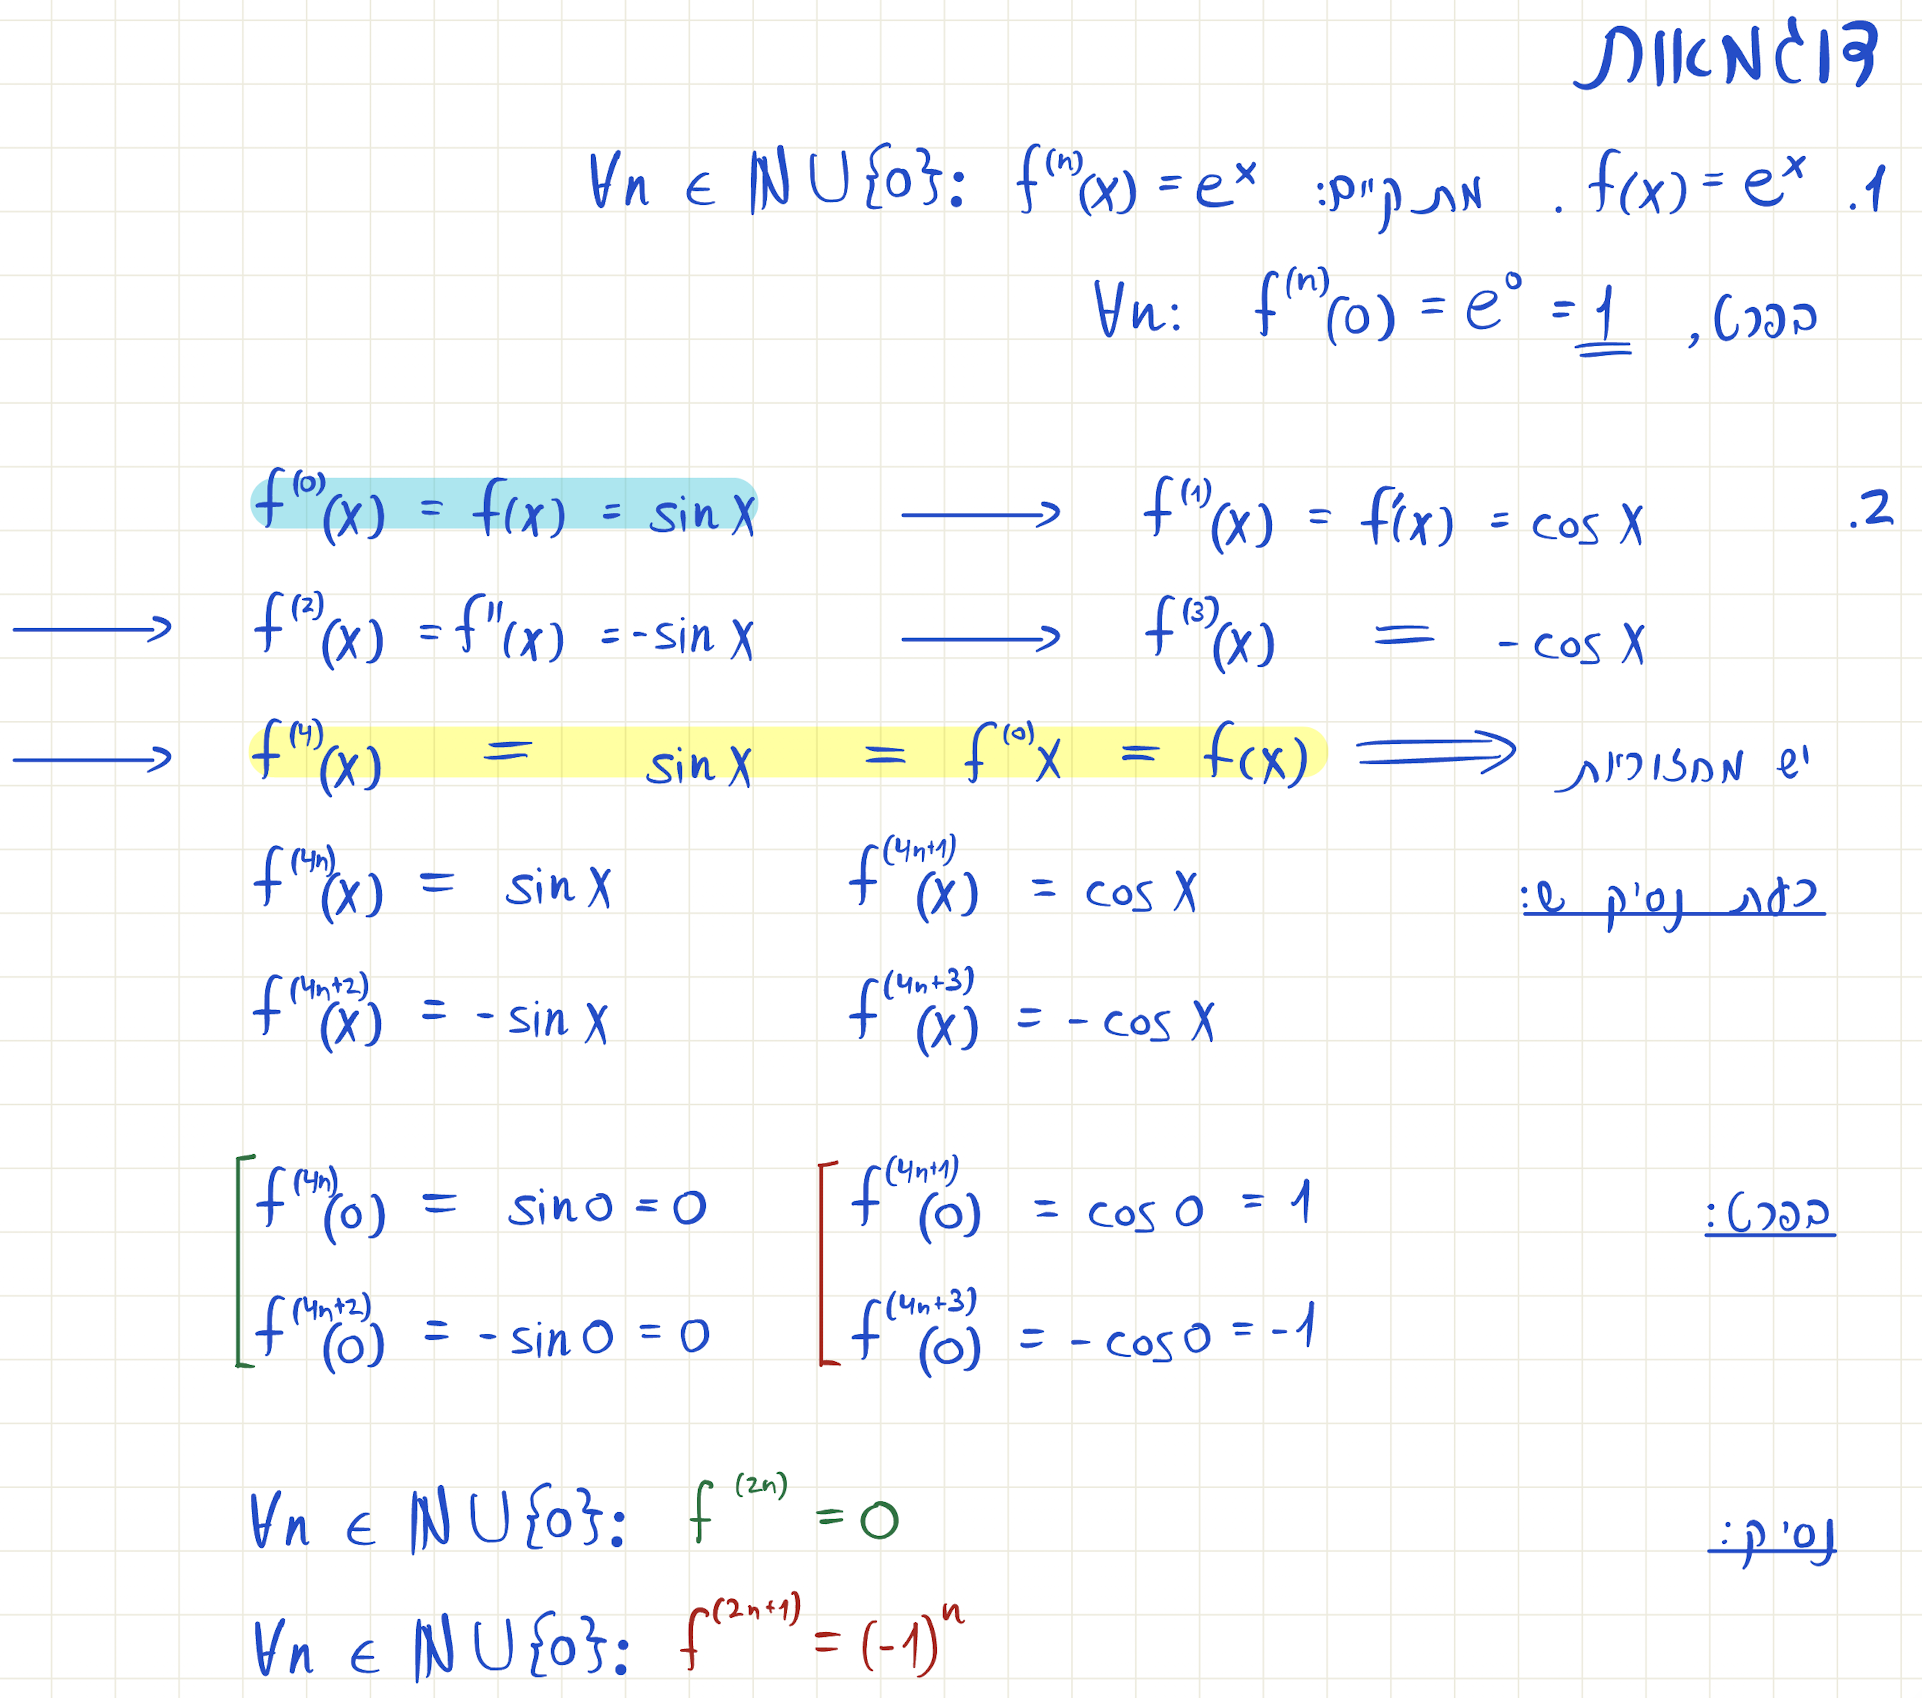 דוגמאות
1. f(x) = e^x . מתקיים: ∀n ∈ ℕ∪{0}: f^(n)(x) = e^x
בפרט, ∀n: f^(n)(0) = e^0 = 1
2. f^(0)(x) = f(x) = sin x ⟶ f^(1)(x) = f'(x) = cos x
⟶ f^(2)(x) = f''(x) = -sin x ⟶ f^(3)(x) = -cos x
⟶ f^(4)(x) = sin x = f^(0)x = f(x) ⟹ יש מחזוריות
כעת נסיק ש: f^(4n)(x) = sin x f^(4n+1)(x) = cos x
f^(4n+2)(x) = -sin x f^(4n+3)(x) = -cos x
בפרט: f^(4n)(0) = sin 0 = 0 f^(4n+1)(0) = cos 0 = 1
f^(4n+2)(0) = -sin 0 = 0 f^(4n+3)(0) = -cos 0 = -1
נסיק: ∀n ∈ ℕ∪{0}: f^(2n) = 0
∀n ∈ ℕ∪{0}: f^(2n+1) = (-1)^n